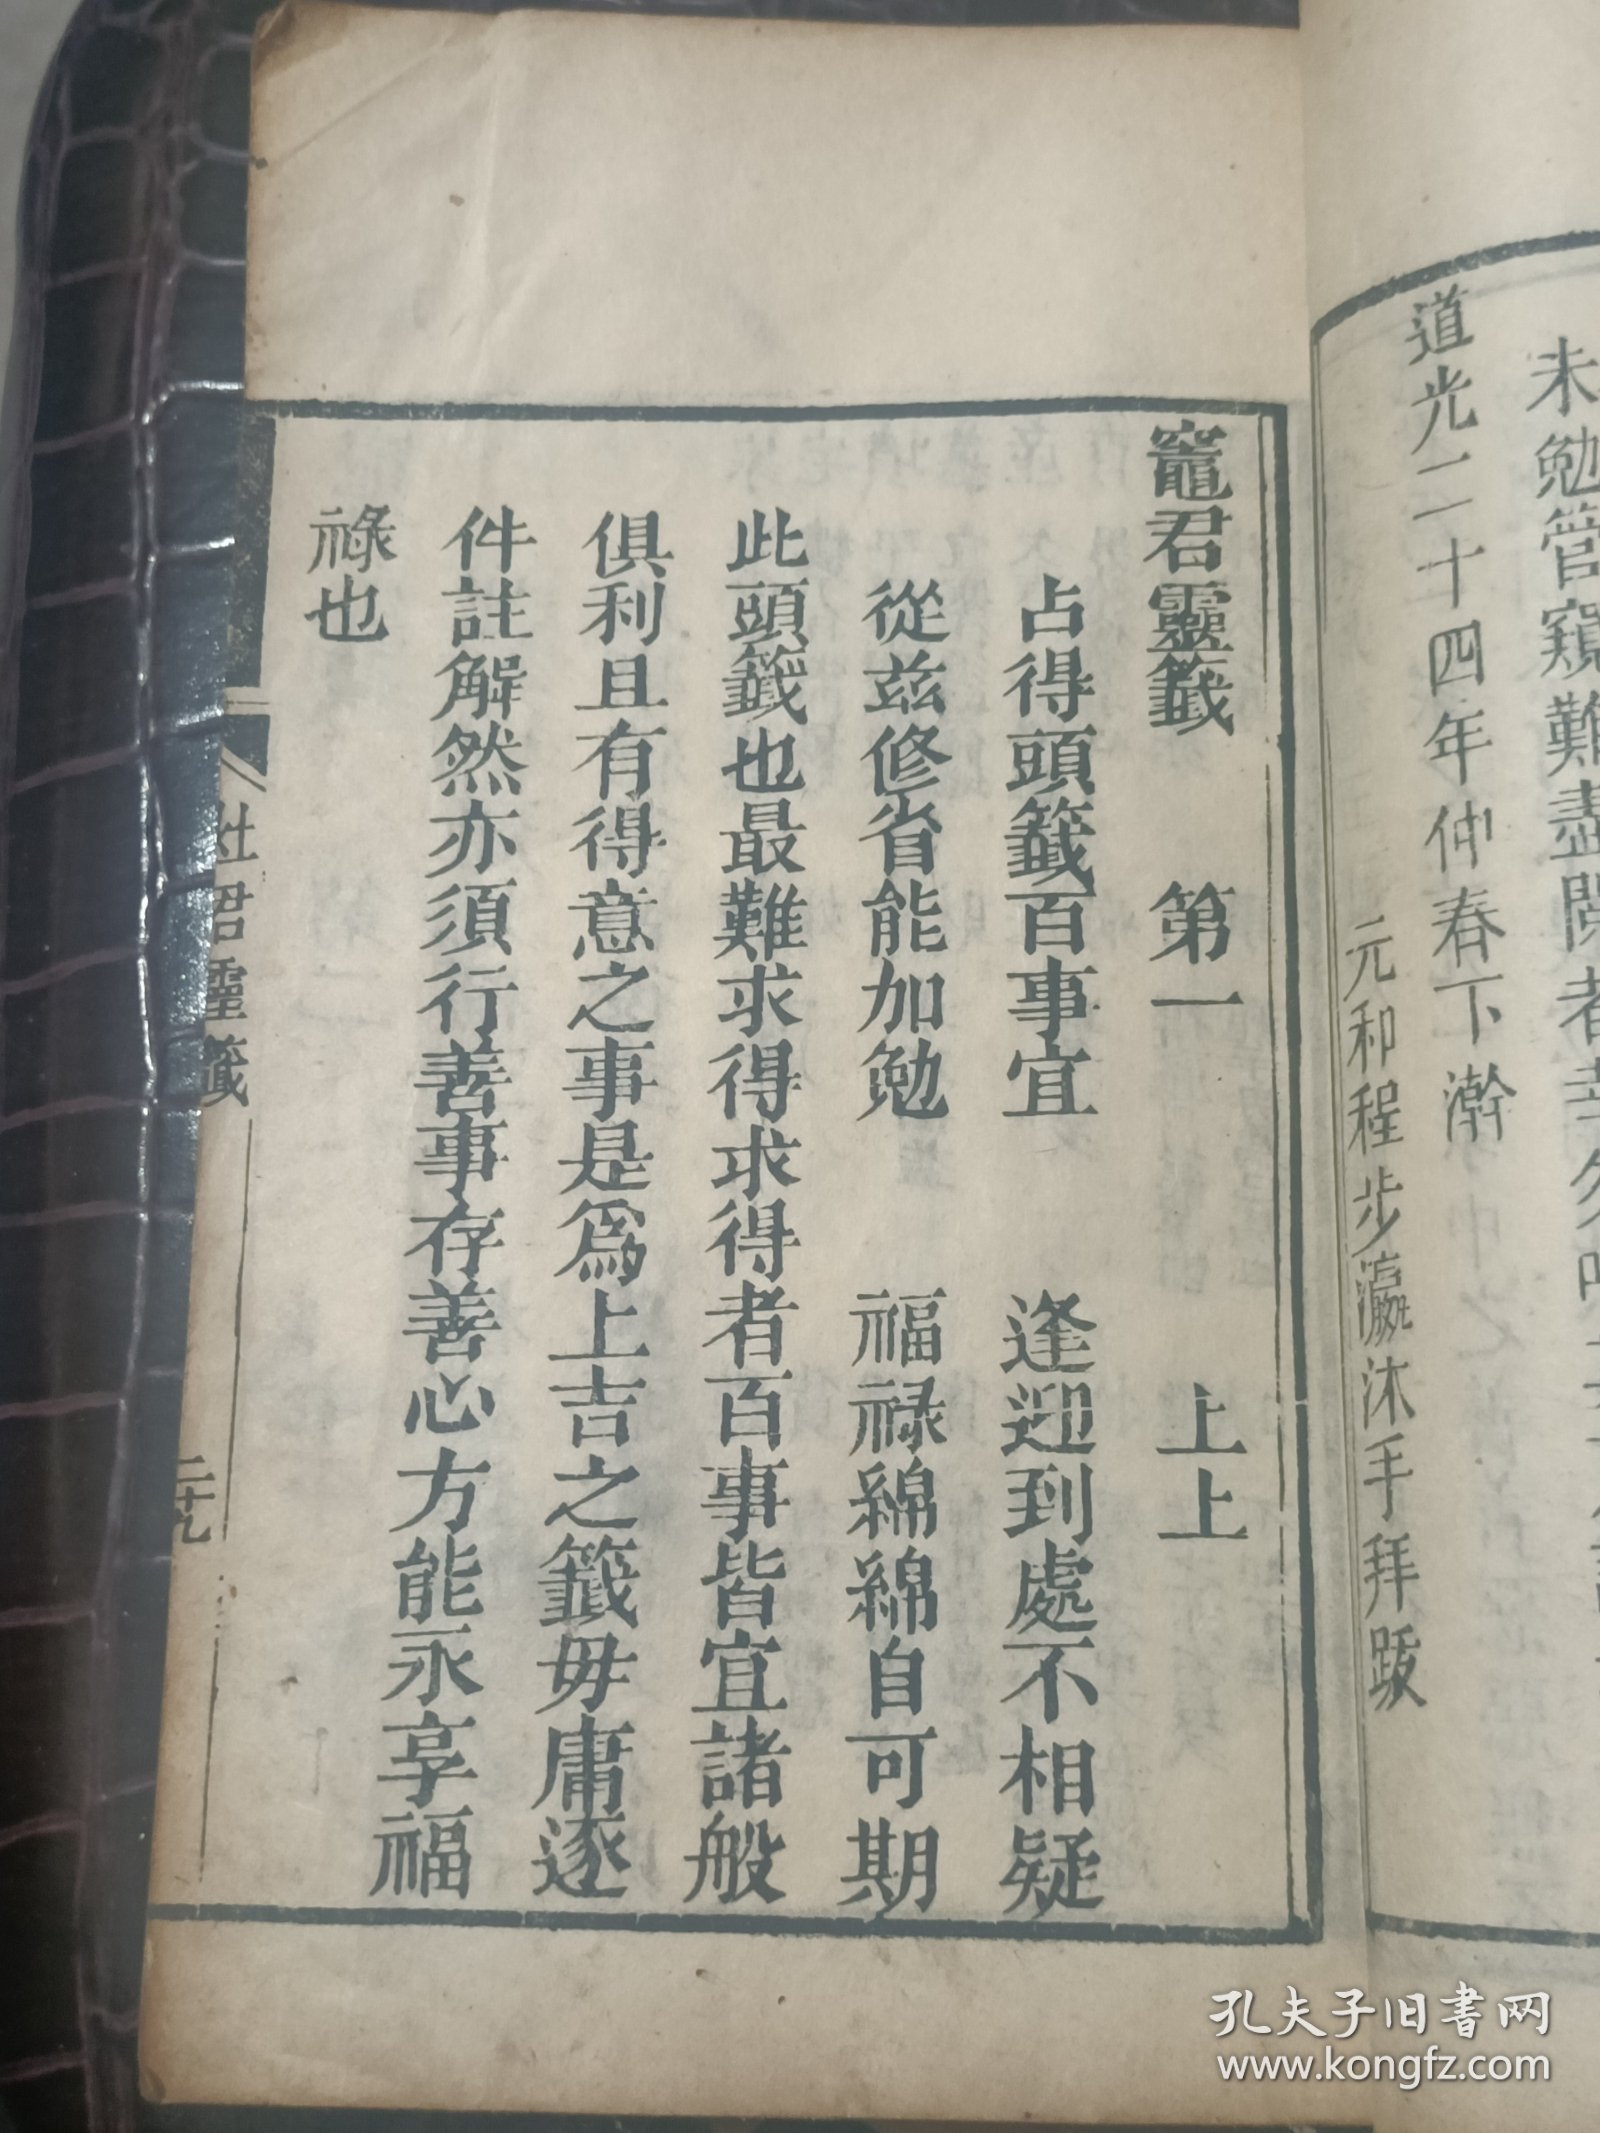 未勉管窺難盡閱者幸勿
道光二十四年仲春下澣
元和程步瀛沐手拜跋
竈君靈籤 第一 上上
占得頭籤百事宜 逢迎到處不相疑
從茲修省能加勉 福祿綿綿自可期
此頭籤也最難求得求得者百事皆宜諸般
俱利且有得意之事是爲上吉之籤毋庸逐
件註解然亦須行善事存善心方能永享福
祿也
灶君靈籤
二十九
孔夫子旧书网
www.kongfz.com